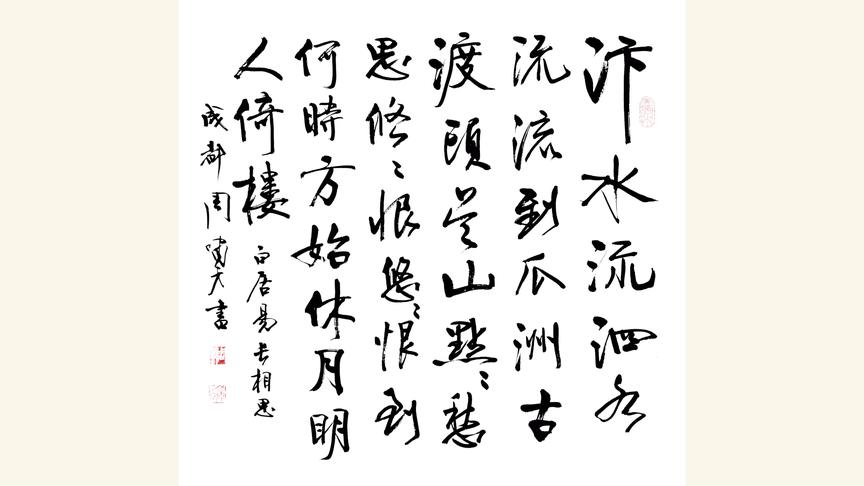 汴水流泗水
流流到瓜洲古
渡頭吳山點〻愁
思悠〻恨悠〻恨到
何時方始休月明
人倚樓
白居易長相思
成都周嘯天書